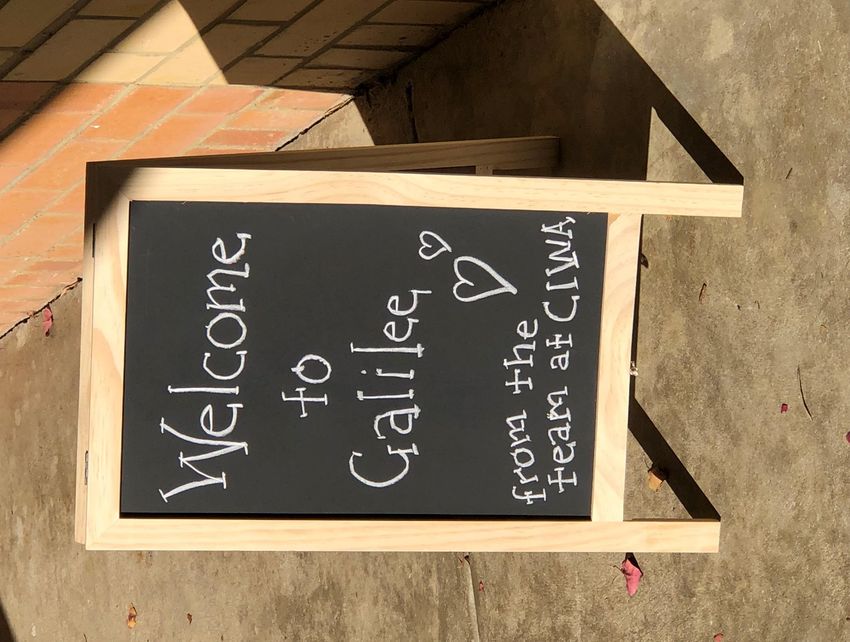 Welcome
to
Galilee
from the
team at CIWA